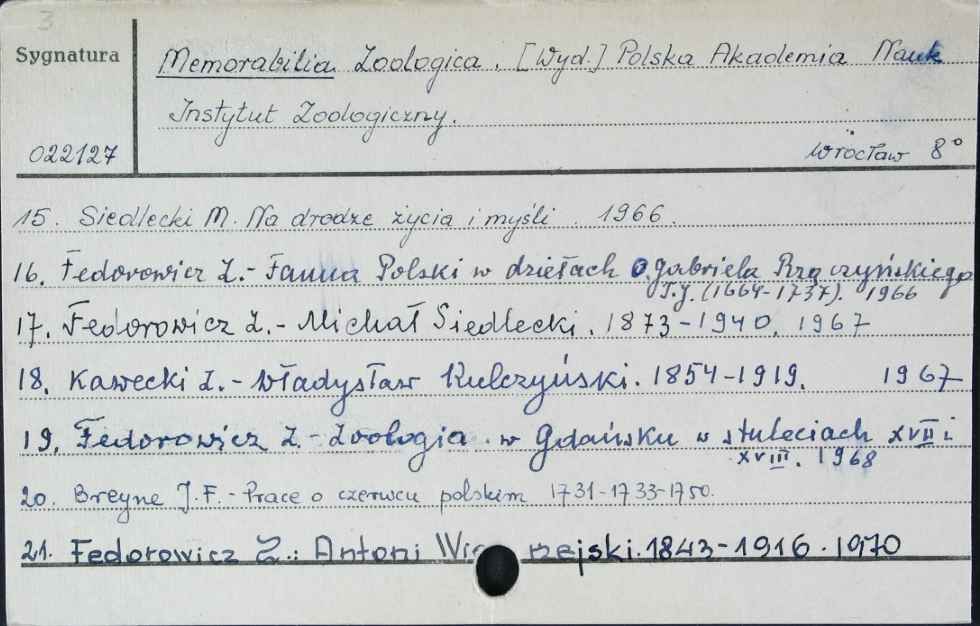 3
Sygnatura
Memorabilia Zoologica. [Wyd.] Polska Akademia Nauk
Instytut Zoologiczny.
022127
Wrocław 8°
15. Siedlecki M. Na drodze życia i myśli. 1966.
16. Fedorowicz Z.- Fauna Polski w dziełach O. Gabriela Rzączyńskiego
T.J. (1664-1737). 1966
17. Fedorowicz Z.- Michał Siedlecki. 1873-1940. 1967
18. Kawecki Z.- Władysław Kulczyński. 1854-1919. 1967
19. Fedorowicz Z.- Zoologia w Gdańsku w stuleciach XVII i
XVIII. 1968
20. Breyne J.F.- Prace o czerwcu polskim 1731-1733-1750.
21. Fedorowicz Z.: Antoni 1843-1916. 1970